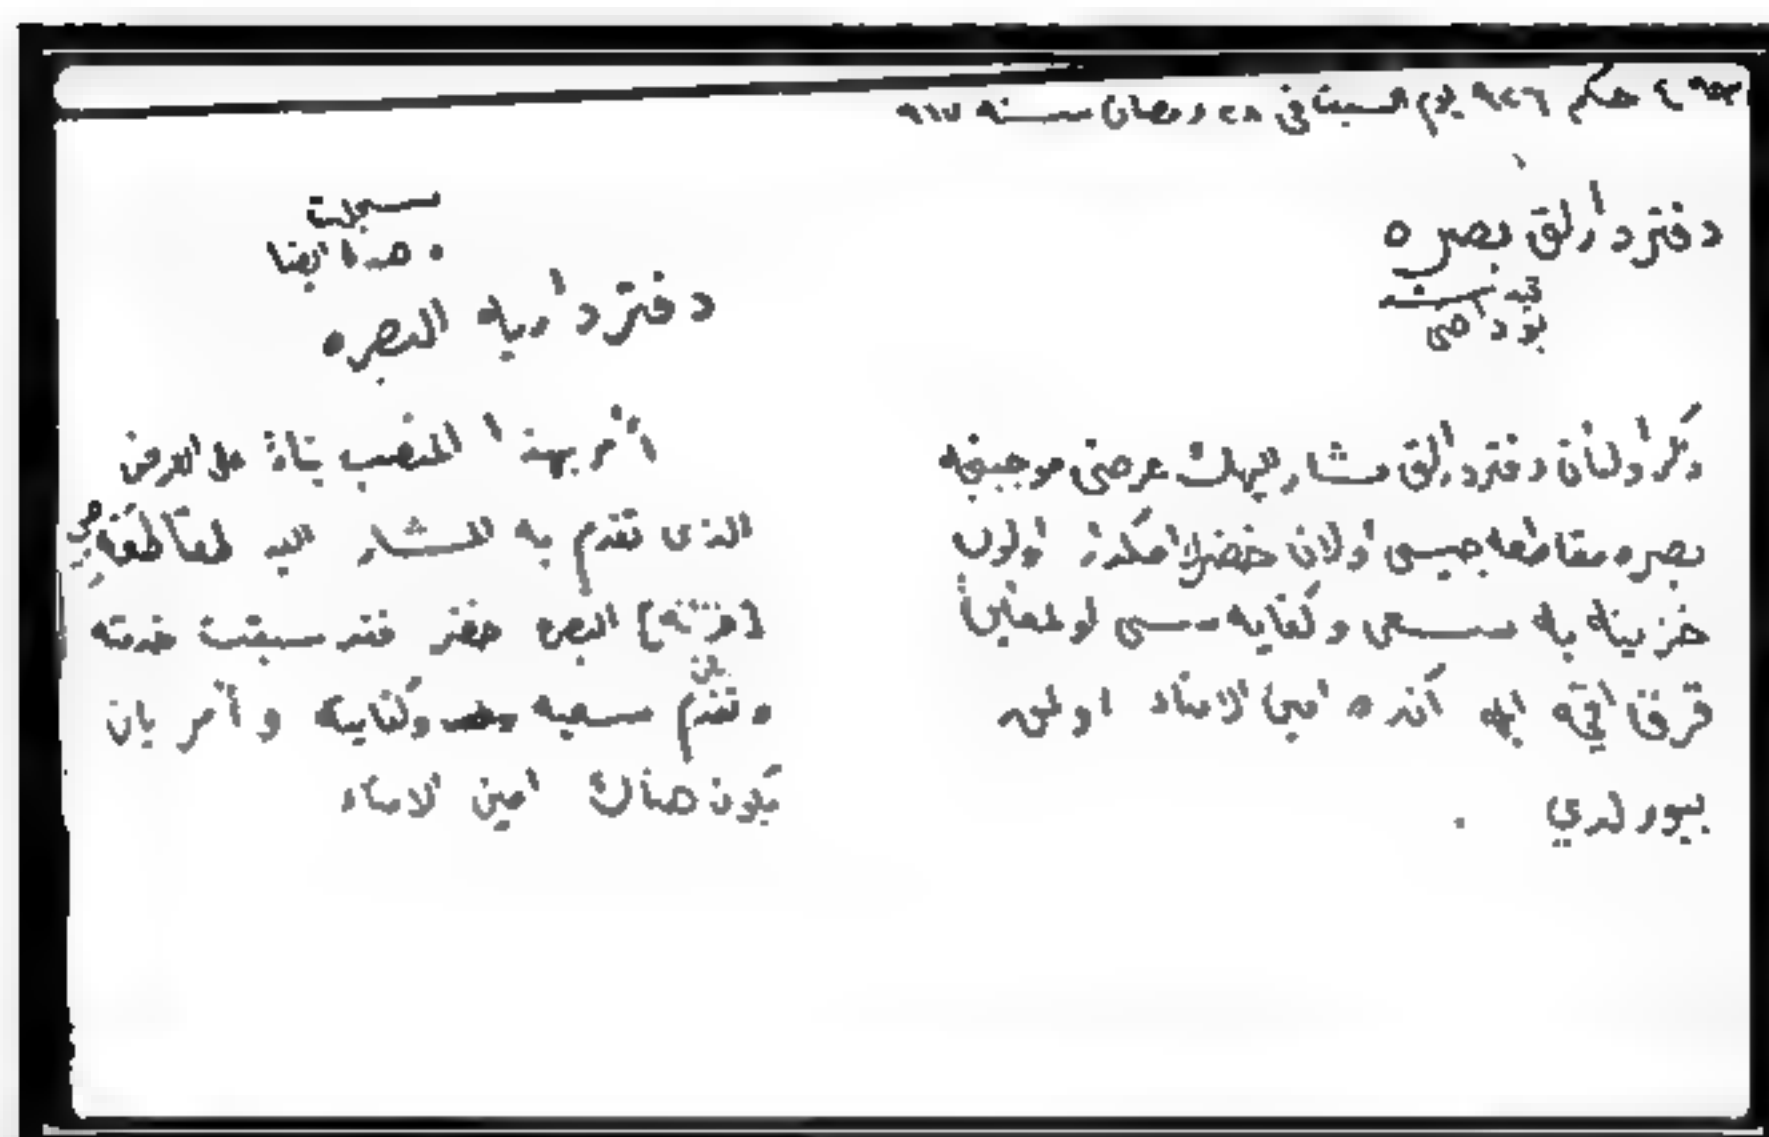 حكم ٩٢٦ يوم السبت في ٢٨ رمضان سنه ٩٦٧
دفتردارلق بصره
بو دخى
ذكر اولنان دفتردارلق مشار اليهك عرضى موجبنجه
بصره مقاطعه جيسى اولان خضر امكدار اولوب
خزينه يه سعى وكفايه سى اولمغين
قرق اقچه ايله آنده امين الامناء اولمق
بيورلدي .
سجلت
وهذا ايضا
دفتردارية البصره
أمر بهذا المنصب بناء على العرض
الذى تقدم به المشار اليه لمقاطعة جى
[خزينه] البصره خضر فقد سبقت خدمته
وتقدم سعيه وكفايته وأمر بان
يكون هناك امين الامناء